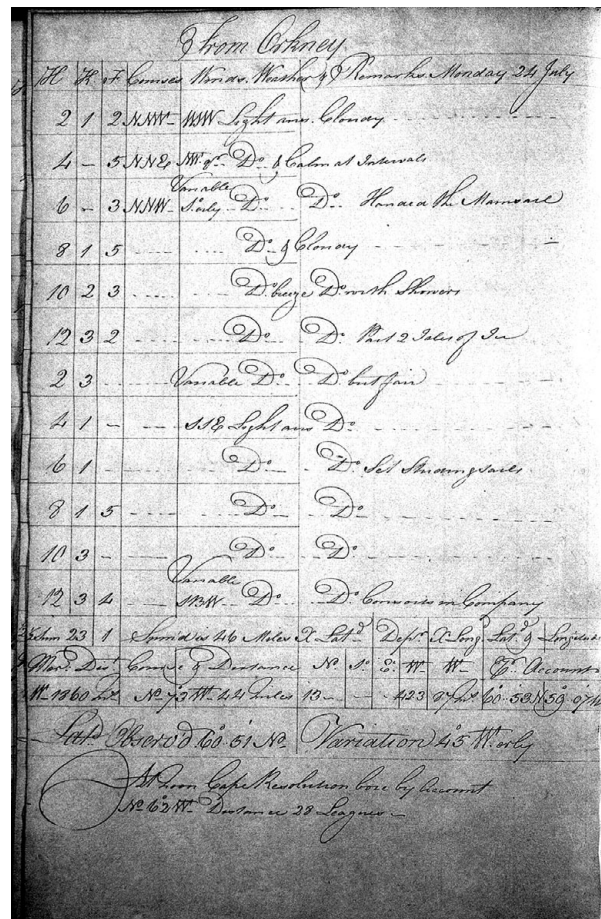 From Orkney
H K F Courses Winds. Weather & Remarks. Monday 24 July
2 1 2 NNW WNW Light airs. Cloudy
4 - 5 NNE NW Do & Calm at Intervals
Variable
6 - 3 NNW Do Do Handed the Mainsail
8 1 5 Do & Cloudy
10 2 3 Do breeze Do with Showers
12 3 2 Do Do Past 2 Isles of Ice
2 3 Variable Do Do but fair
4 1 - SSE Light airs Do
6 1 Do Do Set Studingsails
8 1 5 Do Do
10 3 - Do Do
Variable
12 3 4 Do Do Consorts in Company
23 1 46 Miles X Latd Depr X Long. Latd & Longitude
Merd Dist Course & Distance No So E. W. W Pr Account
No 73 W 44 Miles 13 - - 423 60.53 N 59.
Latd Observd 60.51 No. Variation 45 W.erly
At noon Cape Resolution bore by account
No 62 W Distance 28 Leagues